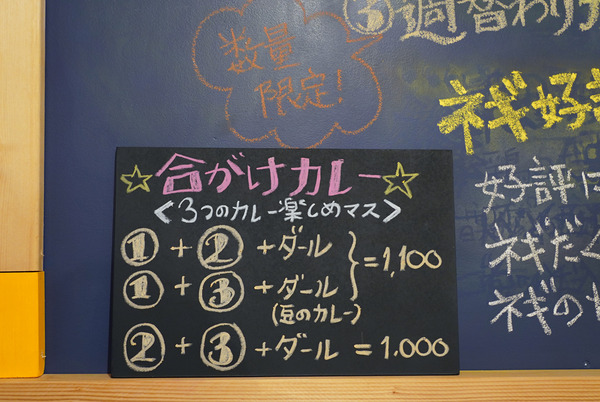 数量
限定!
③週替わり
ネギ好評
好評に
ネギだく
ネギの
☆合がけカレー☆
<3つのカレー楽しめマス>
①+②+ダール
①+③+ダール
}=1,100
(豆のカレー)
②+③+ダール=1.000